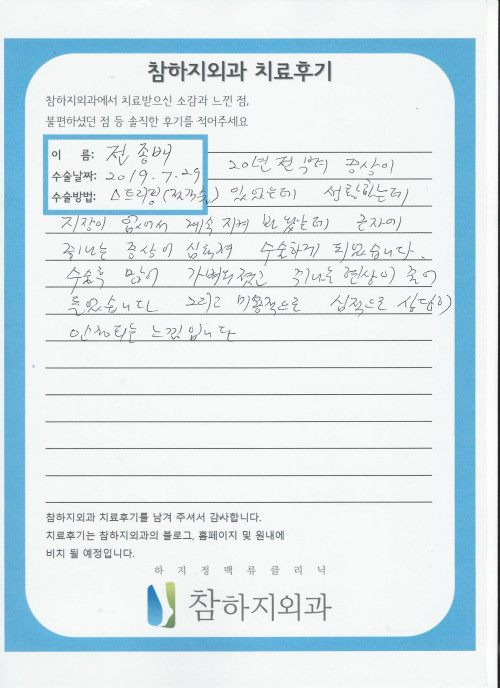 참하지외과 치료후기
참하지외과에서 치료받으신 소감과 느낀 점,
불편하셨던 점 등 솔직한 후기를 적어주세요
이 름: 전종배
수술날짜: 2019.7.29
수술방법: 스트리핑(
20년 전부터 증상이
있었는데 생활하는데
지장이 없어서 계속 지켜 보았는데 근자에
쥐나는 증상이 심해져 수술하게 되었습니다.
수술후 많이 가벼워졌고 쥐나는 현상이 줄어
들었습니다 그리고 미용적으로 심적으로 상당히
안정되는 느낌입니다
참하지외과 치료후기를 남겨 주셔서 감사합니다.
치료후기는 참하지외과의 블로그, 홈페이지 및 원내에
비치 될 예정입니다.
하지정맥류클리닉
참하지외과